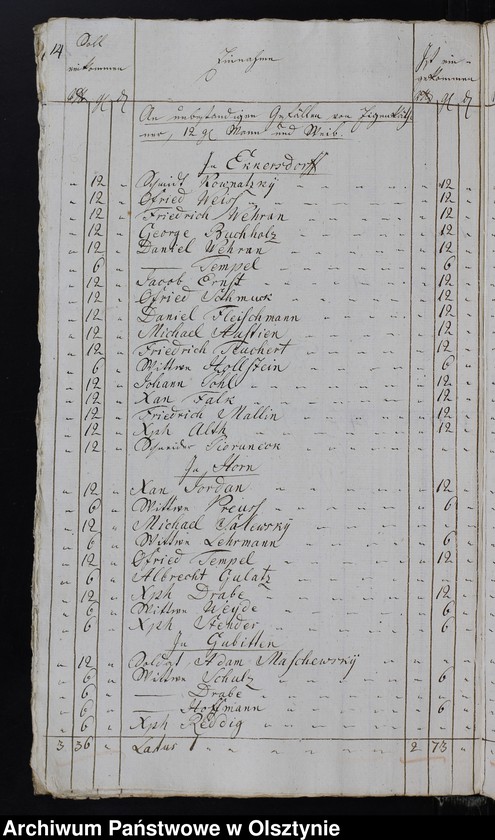 14 Soll Einnahme Ist ein-
einkommen gekommen
rtl gl d rtl gl d
An unbeständigen Gefällen von Eigenkäth
ner, 12 gl Mann und Weib.
In Eckersdorff
" 12 " Schmidt Kownatzky " 12 "
" 12 " Gfried Weiss " 12 "
" 12 " Friedrich Wehran " 12 "
" 12 " George Buchholz " 12 "
" 12 " Daniel Wehran " 12 "
" 6 " — Tempel " 6 "
" 12 " Jacob Ernst " 12 "
" 12 " Gfried Schmuck " 12 "
" 12 " Daniel Fleischmann " 12 "
" 12 " Michael Austien " 12 "
" 12 " Friedrich Teuchert " 12 "
" 6 " Wittwe Hollstein " 6 "
" 12 " Johann Pohl " 12 "
" 12 " Xan Falk " 12 "
" 12 " Friedrich Mallin " 12 "
" 12 " Xph Alth " 12 "
" 12 " Schneider " " "
In Horn
" 12 " Xan Jordan " 12 "
" 6 " Wittwe Preuss " 6 "
" 12 " Michael Salewsky " 12 "
" 6 " Wittwe Lehrmann " 6 "
" 12 " Gfried Tempel " 12 "
" 6 " Albrecht Gulatz " " "
" 12 " Xph Drabe " 12 "
" 6 " Wittwe Weyde " 6 "
" 6 " Xph Stender " 6 "
In Gubitten
" 12 " Soldat Adam Maschewsky " " "
" 6 " Wittwe Schulz " 6 "
" 6 " — Drabe " 6 "
" 6 " — Hoffmann " 6 "
" 6 " Xph Reddig " " "
3 36 " Latus 2 73 "
Archiwum Państwowe w Olsztynie